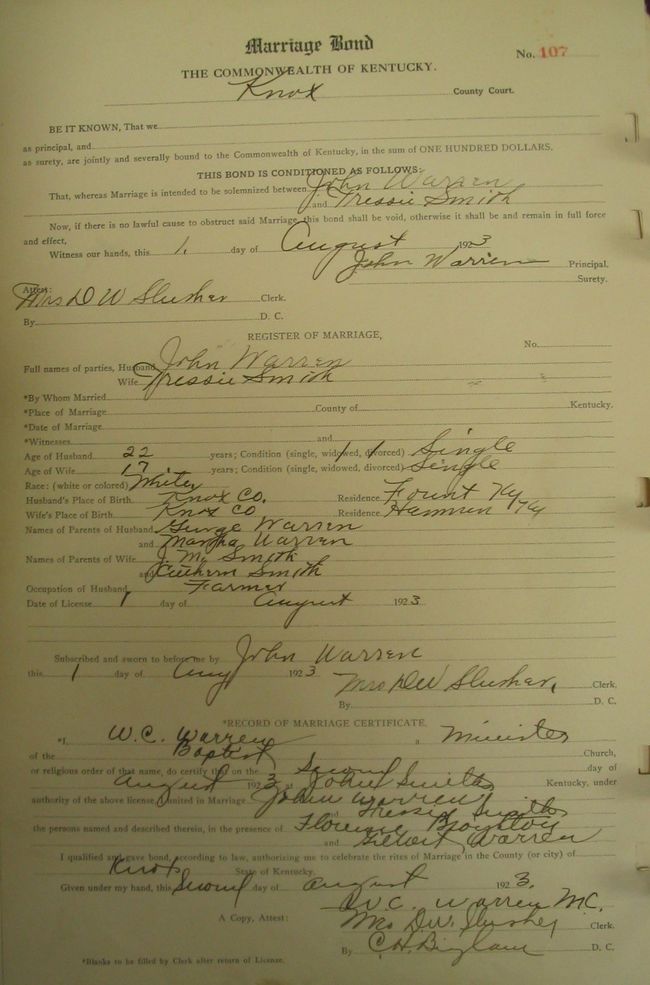 Marriage Bond
No. 107
THE COMMONWEALTH OF KENTUCKY.
Knox County Court.
BE IT KNOWN, That we
as principal, and
as surety, are jointly and severally bound to the Commonwealth of Kentucky, in the sum of ONE HUNDRED DOLLARS.
THIS BOND IS CONDITIONED AS FOLLOWS:
That, whereas Marriage is intended to be solemnized between John Warren
and Tressie Smith
Now, if there is no lawful cause to obstruct said Marriage, this bond shall be void, otherwise it shall be and remain in full force
and effect,
Witness our hands, this 1. day of August 1923
John Warren Principal.
Surety.
Attest:
Mrs D W Slusher Clerk.
By D. C.
REGISTER OF MARRIAGE,
No.
Full names of parties, Husband John Warren
Wife Tressie Smith
*By Whom Married
*Place of Marriage County of Kentucky.
*Date of Marriage
*Witnesses and
Age of Husband 22 years; Condition (single, widowed, divorced) Single
Age of Wife 17 years; Condition (single, widowed, divorced) Single
Race: (white or colored) White
Husband's Place of Birth Knox Co. Residence Fount Ky
Wife's Place of Birth Knox Co Residence Hammon Ky
Names of Parents of Husband George Warren
and Martha Warren
Names of Parents of Wife J. M. Smith
and Smith
Occupation of Husband Farmer
Date of License 1 day of August 1923
Subscribed and sworn to before me by John Warren
this 1 day of Aug 1923
Mrs D W Slusher, Clerk.
By D. C.
*RECORD OF MARRIAGE CERTIFICATE.
*I, W.C. Warren a Minister
of the Baptist Church,
or religious order of that name, do certify that on the Second day of
August 1923 at John Smiths Kentucky, under
authority of the above license, I united in Marriage John Warren
and Tressie Smith
the persons named and described therein, in the presence of Florence Broughton
and Warren
I qualified and gave bond, according to law, authorizing me to celebrate the rites of Marriage in the County (or city) of
Knox State of Kentucky.
Given under my hand, this Second day of August 1923.
W.C. Warren M.C.
A Copy, Attest: Mrs D.W. Slusher Clerk.
By C.H. D. C.
*Blanks to be filled by Clerk after return of License.